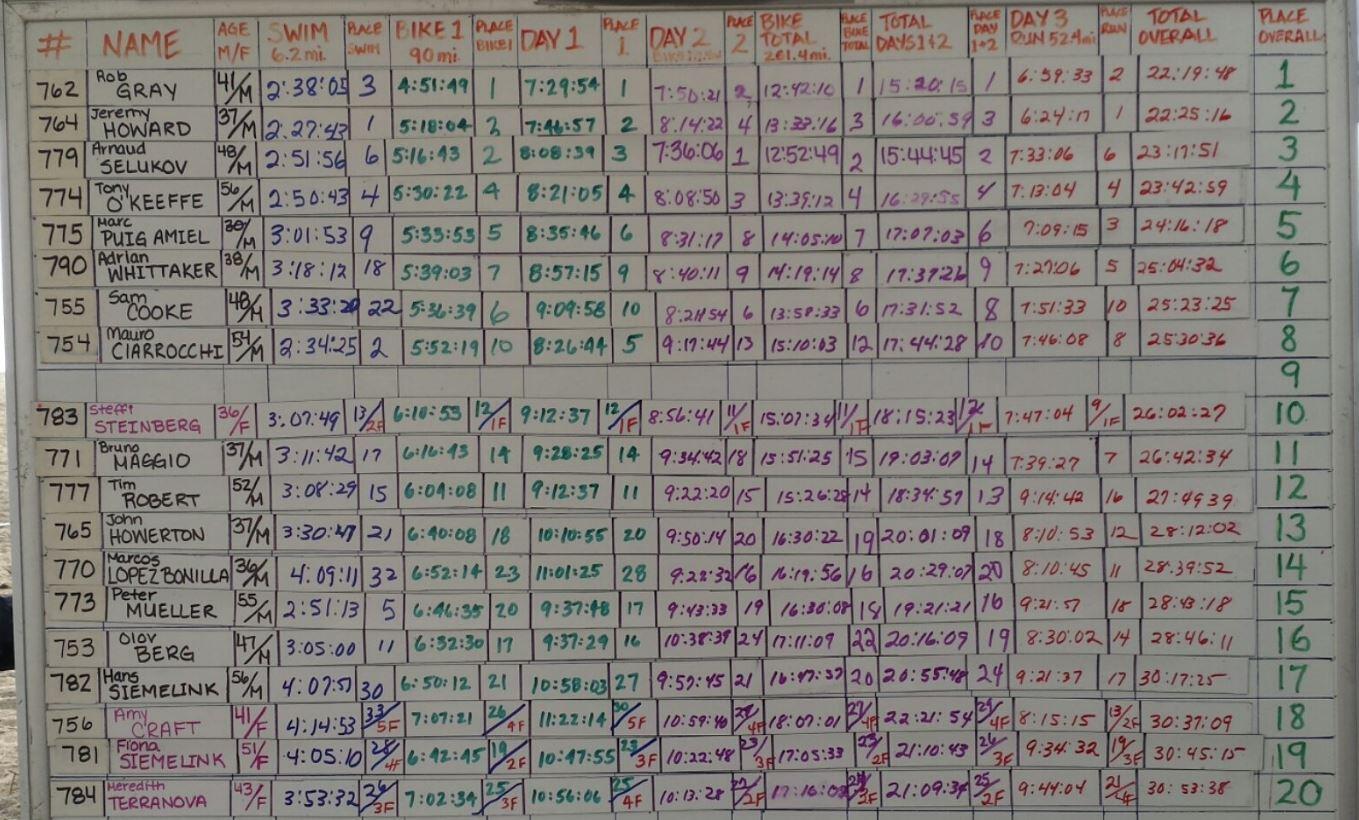 # NAME AGE M/F SWIM 6.2mi. PLACE SWIM BIKE 1 90mi. PLACE BIKE 1 DAY 1 PLACE 1 DAY 2 PLACE 2 BIKE TOTAL 261.4mi. PLACE BIKE TOTAL TOTAL DAYS 1+2 PLACE DAY 1+2 DAY 3 RUN 52.4mi PLACE RUN TOTAL OVERALL PLACE OVERALL
762 Rob GRAY 41/M 2:38:05 3 4:51:49 1 7:29:54 1 7:50:21 2 12:42:10 1 15:20:15 1 6:59:33 2 22:19:48 1
764 Jeremy HOWARD 37/M 2:27:43 1 5:18:04 3 7:46:57 2 8:14:22 4 13:33:16 3 16:00:59 3 6:24:17 1 22:25:16 2
779 Arnaud SELUKOV 48/M 2:51:56 6 5:16:43 2 8:08:39 3 7:36:06 1 12:52:49 2 15:44:45 2 7:33:06 6 23:17:51 3
774 Tony O'KEEFFE 56/M 2:50:43 4 5:30:22 4 8:21:05 4 8:08:50 3 13:39:12 4 16:29:55 4 7:13:04 4 23:42:59 4
775 Marc PUIG AMIEL 30/M 3:01:53 9 5:33:53 5 8:35:46 6 8:31:17 8 14:05:10 7 17:07:03 6 7:09:15 3 24:16:18 5
790 Adrian WHITTAKER 38/M 3:18:12 18 5:39:03 7 8:57:15 9 8:40:11 9 14:19:14 8 17:3726 9 7:27:06 5 25:04:32 6
755 Sam COOKE 48/M 3:33:20 22 5:36:39 6 9:09:58 10 8:21:54 6 13:58:33 6 17:31:52 8 7:51:33 10 25:23:25 7
754 Mauro CIARROCCHI 54/M 2:34:25 2 5:52:19 10 8:26:44 5 9:17:44 13 15:10:03 12 17:44:28 10 7:46:08 8 25:30:36 8
9
783 Steffi STEINBERG 36/F 3:07:49 13/2F 6:10:53 12/1F 9:12:37 12/1F 8:56:41 11/1F 15:07:34 11/1F 18:15:23 12/1F 7:47:04 9/1F 26:02:27 10
771 Bruno MAGGIO 37/M 3:11:42 17 6:16:43 14 9:28:25 14 9:34:42 18 15:51:25 15 19:03:07 14 7:39:27 7 26:42:34 11
777 Tim ROBERT 52/M 3:08:29 15 6:04:08 11 9:12:37 11 9:22:20 15 15:26:28 14 18:34:57 13 9:14:42 16 27:49 39 12
765 John HOWERTON 37/M 3:30:47 21 6:40:08 18 10:10:55 20 9:50:14 20 16:30:22 19 20:01:09 18 8:10:53 12 28:12:02 13
770 Marcos LOPEZ BONILLA 36/M 4:09:11 32 6:52:14 23 11:01:25 28 9:28:32 16 16:19:56 16 20:29:07 20 8:10:45 11 28:39:52 14
773 Peter MUELLER 55/M 2:51:13 5 6:46:35 20 9:37:48 17 9:43:33 19 16:30:08 18 19:21:21 16 9:21:57 18 28:43:18 15
753 Olav BERG 47/M 3:05:00 11 6:32:30 17 9:37:29 16 10:38:39 24 17:11:09 22 20:16:09 19 8:30:02 14 28:46:11 16
782 Hans SIEMELINK 56/M 4:07:51 30 6:50:12 21 10:58:03 27 9:57:45 21 16:47:57 20 20:55:48 24 9:21:37 17 30:17:25 17
756 Amy CRAFT 41/F 4:14:53 33/5F 7:07:21 26/4F 11:22:14 30/5F 10:59:40 28/4F 18:07:01 27/4F 22:21:54 29/4F 8:15:15 13/2F 30:37:09 18
781 Fiona SIEMELINK 51/F 4:05:10 28/4F 6:42:45 19/2F 10:47:55 23/3F 10:22:48 23/3F 17:05:33 23/2F 21:10:43 26/3F 9:34:32 19/3F 30:45:15 19
784 Meredith TERRANOVA 43/F 3:53:32 26/3F 7:02:34 25/3F 10:56:06 25/4F 10:13:28 22/2F 17:16:02 25/2F 21:09:34 25/2F 9:44:04 21/4F 30:53:38 20